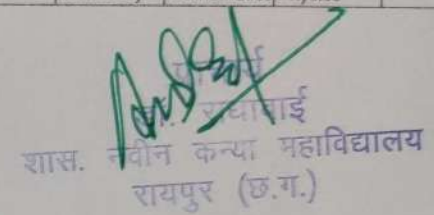 प्राचार्य
राधाबाई
शास. नवीन कन्या महाविद्यालय
रायपुर (छ.ग.)